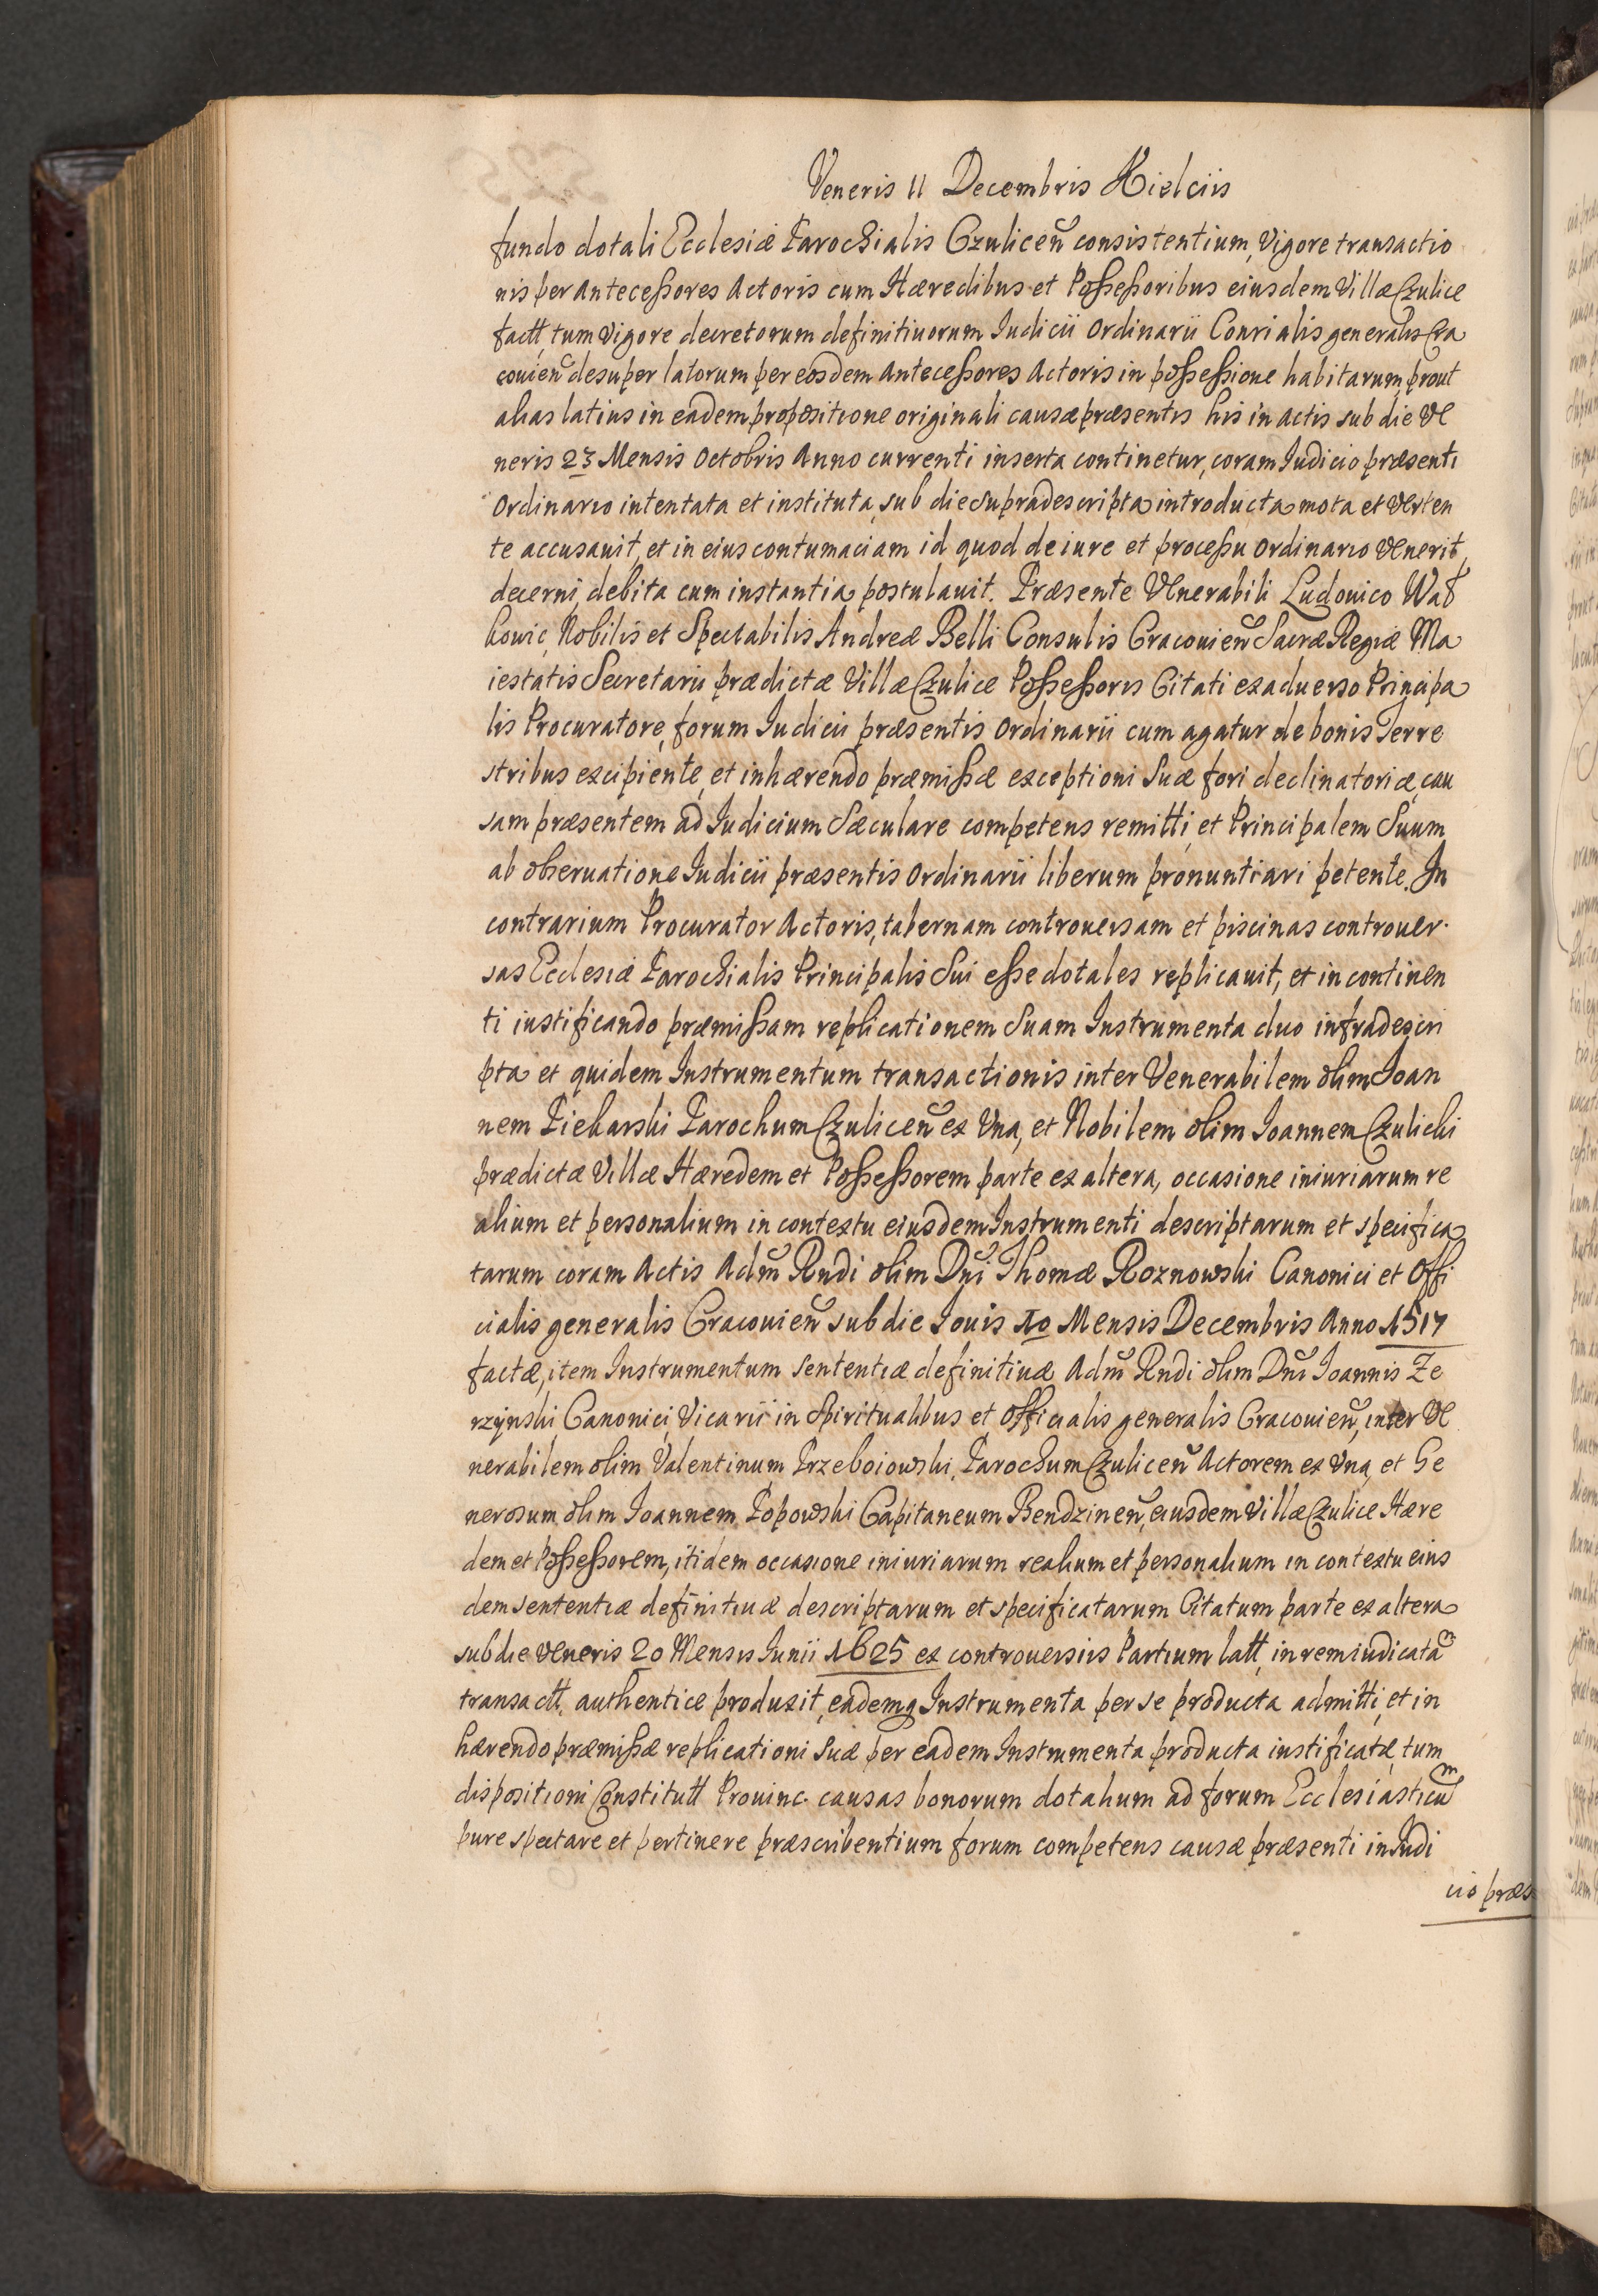 Veneris 11 Decembris Kielciis
fundo dotali Ecclesiæ Parochialis Czulicen̄ consistentium, Vigore transactio
nis per Antecessores Actoris cum Hæredibus et Possessoribus eiusdem Villæ Czulice
factt, tum vigore decretorum definitiuorum Iudicii Ordinarii Consistorialis generalis Cra
couien̄ desuper latorum per eosdem Antecessores Actoris in possessione habitarum, prout
alias latius in eadem propositione originali causæ præsentis his in actis sub die Ve
neris 23 Mensis Octobris Anno currenti inserta continetur, coram Iudicio præsenti
Ordinario intentata et instituta, sub die supradescripta introducta mota et Verten
te accusauit, et in eius contumaciam id quod de iure et processu ordinario Venerit,
decerni, debita cum instantia postulauit. Præsente Venerabili Ludouico Wąt
kowic, Nobilis et Spectabilis Andreæ Belli Consulis Cracouien̄ Sacræ Regiæ Ma
iestatis Secretarii prædictæ Villæ Czulice Possessoris Citati ex aduerso Principa
lis Procuratore, forum Iudicii præsentis Ordinarii cum agatur de bonis Terre
stribus excipiente, et inhærendo præmissæ exceptioni Suæ fori declinatoriæ, cau
sam præsentem ad Iudicium Sæculare competens remitti, et Principalem Suum
ab obseruatione Iudicii præsentis Ordinarii liberum pronuntiari petente. In
contrarium Procurator Actoris, tabernam controuersam et piscinas controuer-
sas Ecclesiæ Parochialis Principalis Sui esse dotales replicauit, et in continen
ti iustificando præmissam replicationem Suam Instrumenta duo infradescri
pta et quidem Instrumentum transactionis inter Venerabilem olim Ioan
nem Piekarski Parochum Czulicen̄ ex Vna, et Nobilem olim Ioannem Czulicki
prædictæ Villæ Hæredem et Possessorem parte ex altera, occasione iniuriarum re
alium et personalium in contextu eiusdem Instrumenti descriptarum et specifica
tarum coram Actis Adm̄ Rndi olim Dn̄i Thomæ Roznowski Canonici et Offi
cialis generalis Cracouien̄ sub die Iouis 10 Mensis Decembris Anno 1517
factæ, item Instrumentum sententiæ definitiuæ Adm̄ Rndi olim Dn̄i Ioannis Ze
rzynski, Canonici, Vicarii in Spiritualibus et Officialis generalis Cracouien̄, inter Ve
nerabilem olim Valentinum Przeboiowski, Parochum Czulicen̄ Actorem ex Vna, et Ge
nerosum olim Ioannem Popowski Capitaneum Bendzinen̄, eiusdem Villæ Czulice Hære
dem et Possessorem, itidem occasione iniuriarum realium et personalium in contextu eius
dem sententiæ definitiuæ descriptarum et specificatarum Citatum parte ex altera
sub die Veneris 20 Mensis Iunii 1625 ex controuersiis Partium latt, in rem iudicatam
transactt, authentice produxit, eademq Instrumenta per se producta admitti, et in
hærendo præmissæ replicationi Suæ per eadem Instrumenta producta iustificatæ, tum
dispositioni Constitutt Prouinc. causas bonorum dotalium ad forum Ecclesiasticum
pure spectare et pertinere præscribentium forum competens causæ præsenti in Iudi
cio præs